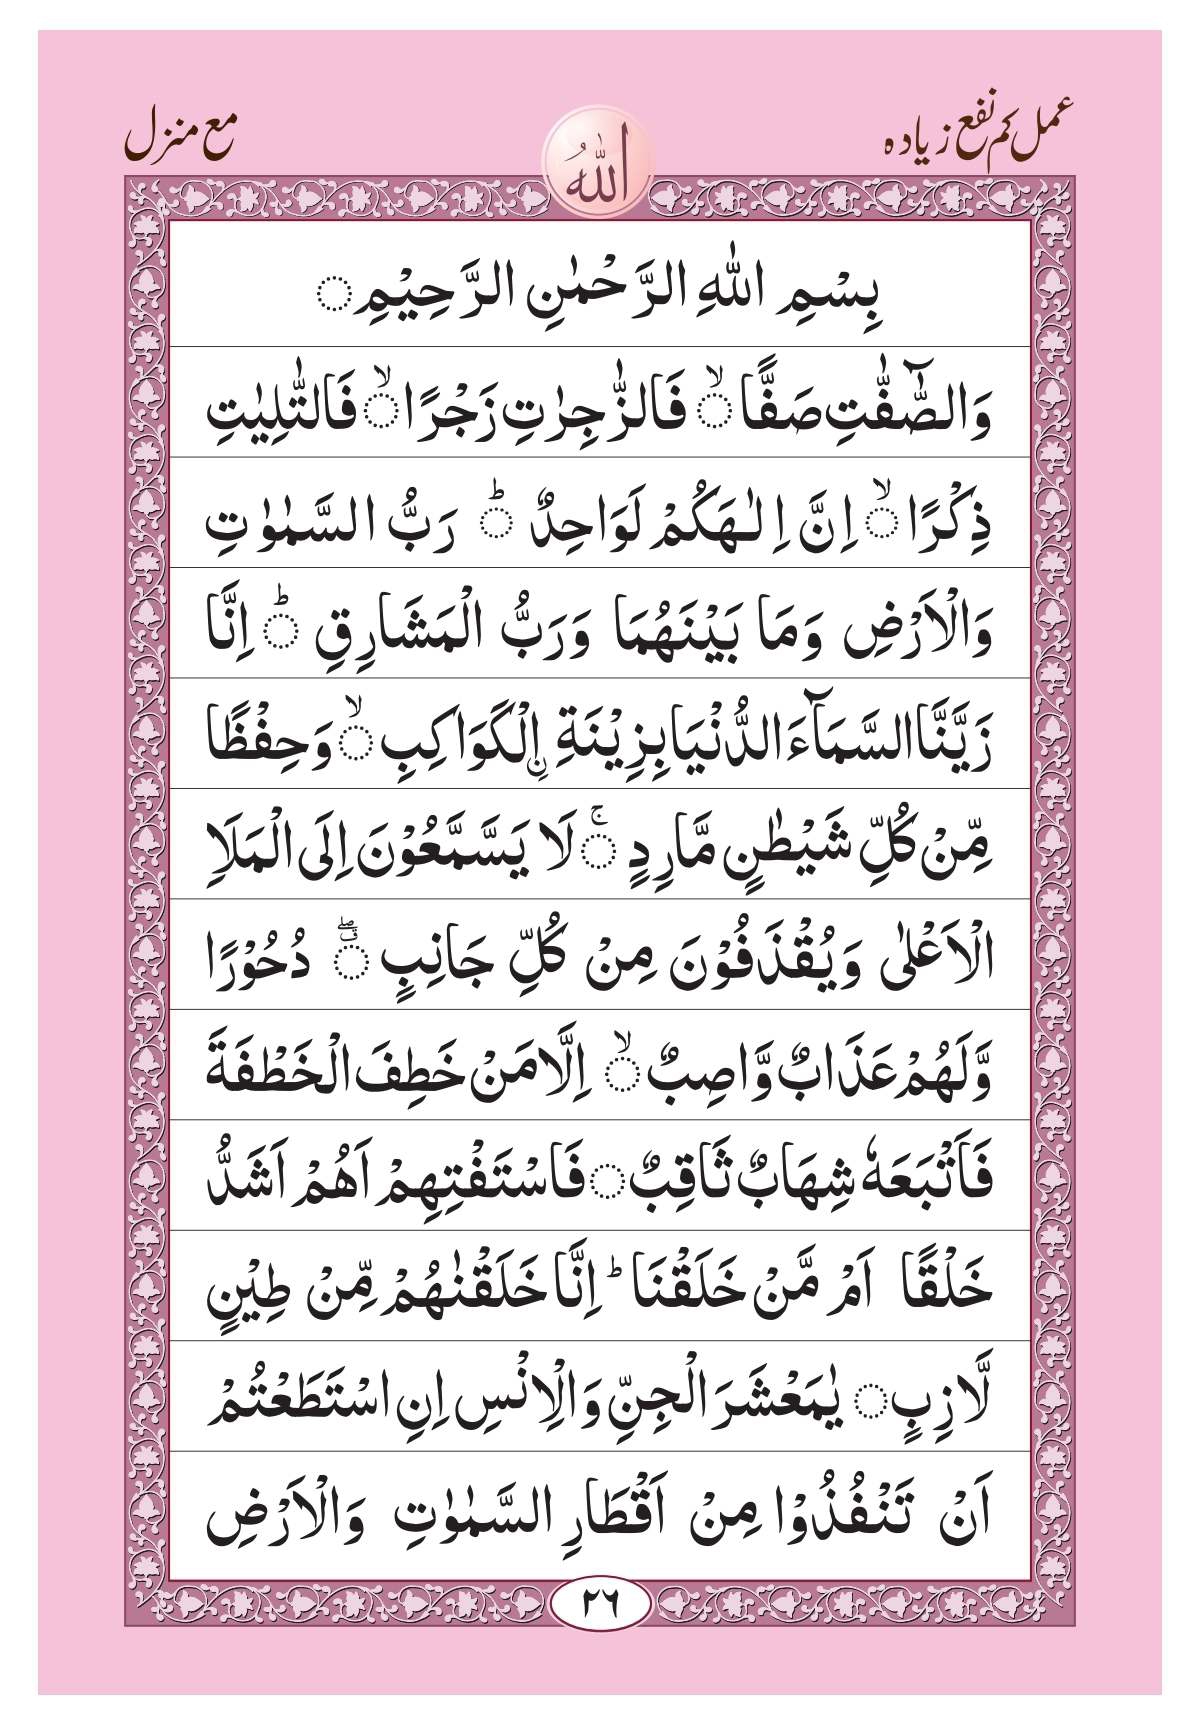 عمل کم نفع زیادہ
مع منزل
اللہ
بِسْمِ اللّٰهِ الرَّحْمٰنِ الرَّحِيْمِ ۝
وَالصّٰٓفّٰتِ صَفًّا ۝ۙ فَالزّٰجِرٰتِ زَجْرًا ۝ۙ فَالتّٰلِيٰتِ
ذِكْرًا ۝ۙ اِنَّ اِلٰـهَكُمْ لَوَاحِدٌ ۝ؕ رَبُّ السَّمٰوٰتِ
وَالْاَرْضِ وَمَا بَيْنَهُمَا وَرَبُّ الْمَشَارِقِ ۝ؕ اِنَّا
زَيَّنَّا السَّمَآءَ الدُّنْيَا بِزِيْنَةِ ۨالْكَوَاكِبِ ۝ۙ وَحِفْظًا
مِّنْ كُلِّ شَيْطٰنٍ مَّارِدٍ ۝ۚ لَا يَسَّمَّعُوْنَ اِلَى الْمَلَاِ
الْاَعْلٰى وَيُقْذَفُوْنَ مِنْ كُلِّ جَانِبٍ ۝ۖق دُحُوْرًا
وَّلَهُمْ عَذَابٌ وَّاصِبٌ ۝ۙ اِلَّا مَنْ خَطِفَ الْخَطْفَةَ
فَاَتْبَعَهٗ شِهَابٌ ثَاقِبٌ ۝ فَاسْتَفْتِهِمْ اَهُمْ اَشَدُّ
خَلْقًا اَمْ مَّنْ خَلَقْنَا ؕ اِنَّا خَلَقْنٰهُمْ مِّنْ طِيْنٍ
لَّازِبٍ ۝ يٰمَعْشَرَ الْجِنِّ وَالْاِنْسِ اِنِ اسْتَطَعْتُمْ
اَنْ تَنْفُذُوْا مِنْ اَقْطَارِ السَّمٰوٰتِ وَالْاَرْضِ
٢٦